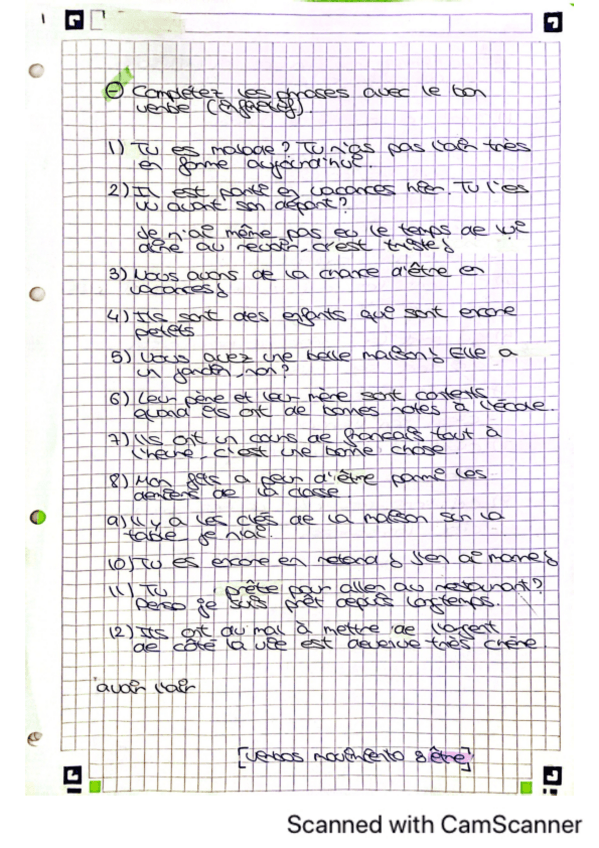 1
Complétez les phrases avec le bon
verbe
1) Tu es malade? Tu n'as pas l'air très
en forme aujourd'hui.
2) Il est parti en vacances hier. Tu l'es
vu avant son départ?
Je n'ai même pas eu le temps de lui
dire au revoir, c'est triste!
3) Nous avons de la chance d'être en
vacances!
4) Ils sont des enfants qui sont encore
petits
5) Vous avez une belle maison! Elle a
un jardin, non?
6) Leur père et leur mère sont contents
quand ils ont de bonnes notes à l'école.
7) Ils ont un cours de français tout à
l'heure, c'est une bonne chose.
8) Mon fils a peur d'être parmi les
derniers de la classe
9) Il y a les clés de la maison sur la
table je n'ai.
10) Tu es encore en retard! J'en ai marre!
11) Tu prête pour aller au restaurant?
Perso je suis prêt depuis longtemps.
12) Ils ont du mal à mettre de l'argent
de côté la vie est devenue très chère
avoir l'air
[verbos movimiento & être]
Scanned with CamScanner